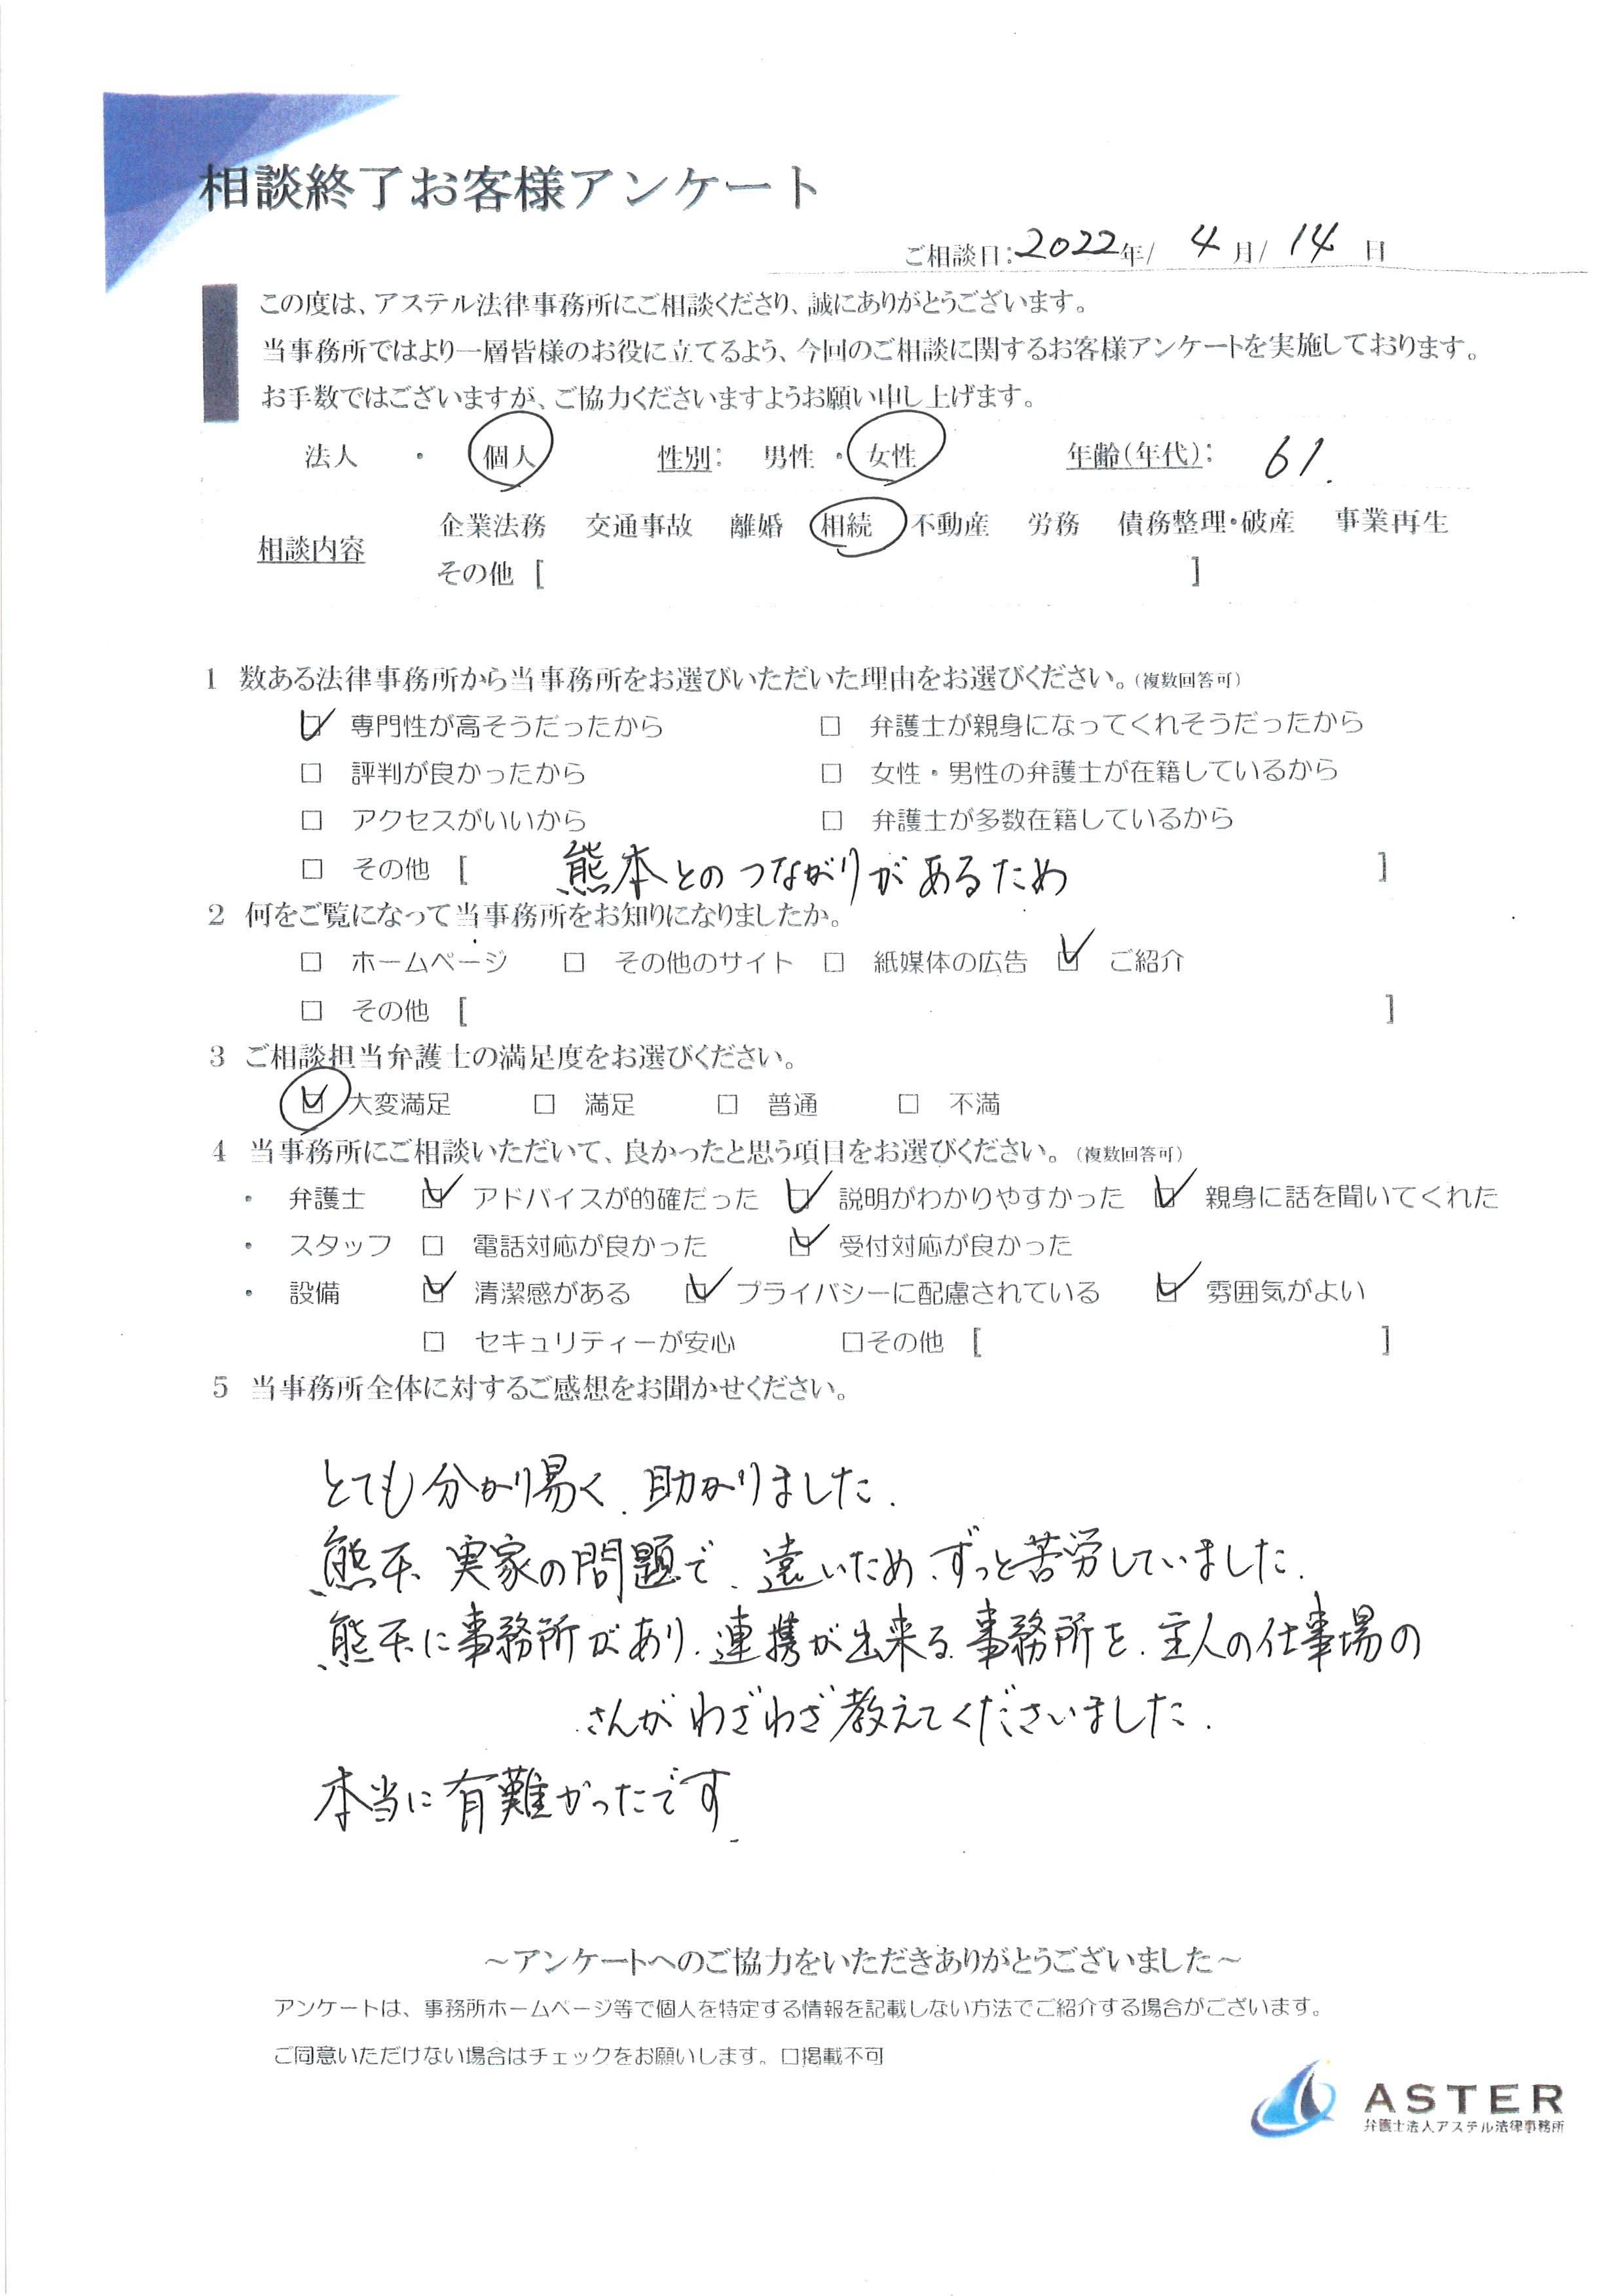 相談終了お客様アンケート
ご相談日:2022年/ 4月/ 14日
この度は、アステル法律事務所にご相談くださり、誠にありがとうございます。
当事務所ではより一層皆様のお役に立てるよう、今回のご相談に関するお客様アンケートを実施しております。
お手数ではございますが、ご協力くださいますようお願い申し上げます。
法人 ・ 個人 性別: 男性 ・ 女性 年齢(年代): 61.
相談内容
企業法務 交通事故 離婚 相続 不動産 労務 債務整理・破産 事業再生
その他 [ ]
1 数ある法律事務所から当事務所をお選びいただいた理由をお選びください。(複数回答可)
☑ 専門性が高そうだったから □ 弁護士が親身になってくれそうだったから
□ 評判が良かったから □ 女性・男性の弁護士が在籍しているから
□ アクセスがいいから □ 弁護士が多数在籍しているから
□ その他 [ 熊本とのつながりがあるため ]
2 何をご覧になって当事務所をお知りになりましたか。
□ ホームページ □ その他のサイト □ 紙媒体の広告 ☑ ご紹介
□ その他 [ ]
3 ご相談担当弁護士の満足度をお選びください。
☑ 大変満足 □ 満足 □ 普通 □ 不満
4 当事務所にご相談いただいて、良かったと思う項目をお選びください。(複数回答可)
・ 弁護士 ☑ アドバイスが的確だった ☑ 説明がわかりやすかった ☑ 親身に話を聞いてくれた
・ スタッフ □ 電話対応が良かった ☑ 受付対応が良かった
・ 設備 ☑ 清潔感がある ☑ プライバシーに配慮されている ☑ 雰囲気がよい
□ セキュリティーが安心 □その他 [ ]
5 当事務所全体に対するご感想をお聞かせください。
とても分かり易く、助かりました.
熊本 実家の問題で、遠いため、ずっと苦労していました.
熊本に事務所があり、連携が出来る事務所を、主人の仕事場の
さんがわざわざ教えてくださいました.
本当に有難かったです.
～アンケートへのご協力をいただきありがとうございました～
アンケートは、事務所ホームページ等で個人を特定する情報を記載しない方法でご紹介する場合がございます。
ご同意いただけない場合はチェックをお願いします。□掲載不可
ASTER
弁護士法人アステル法律事務所